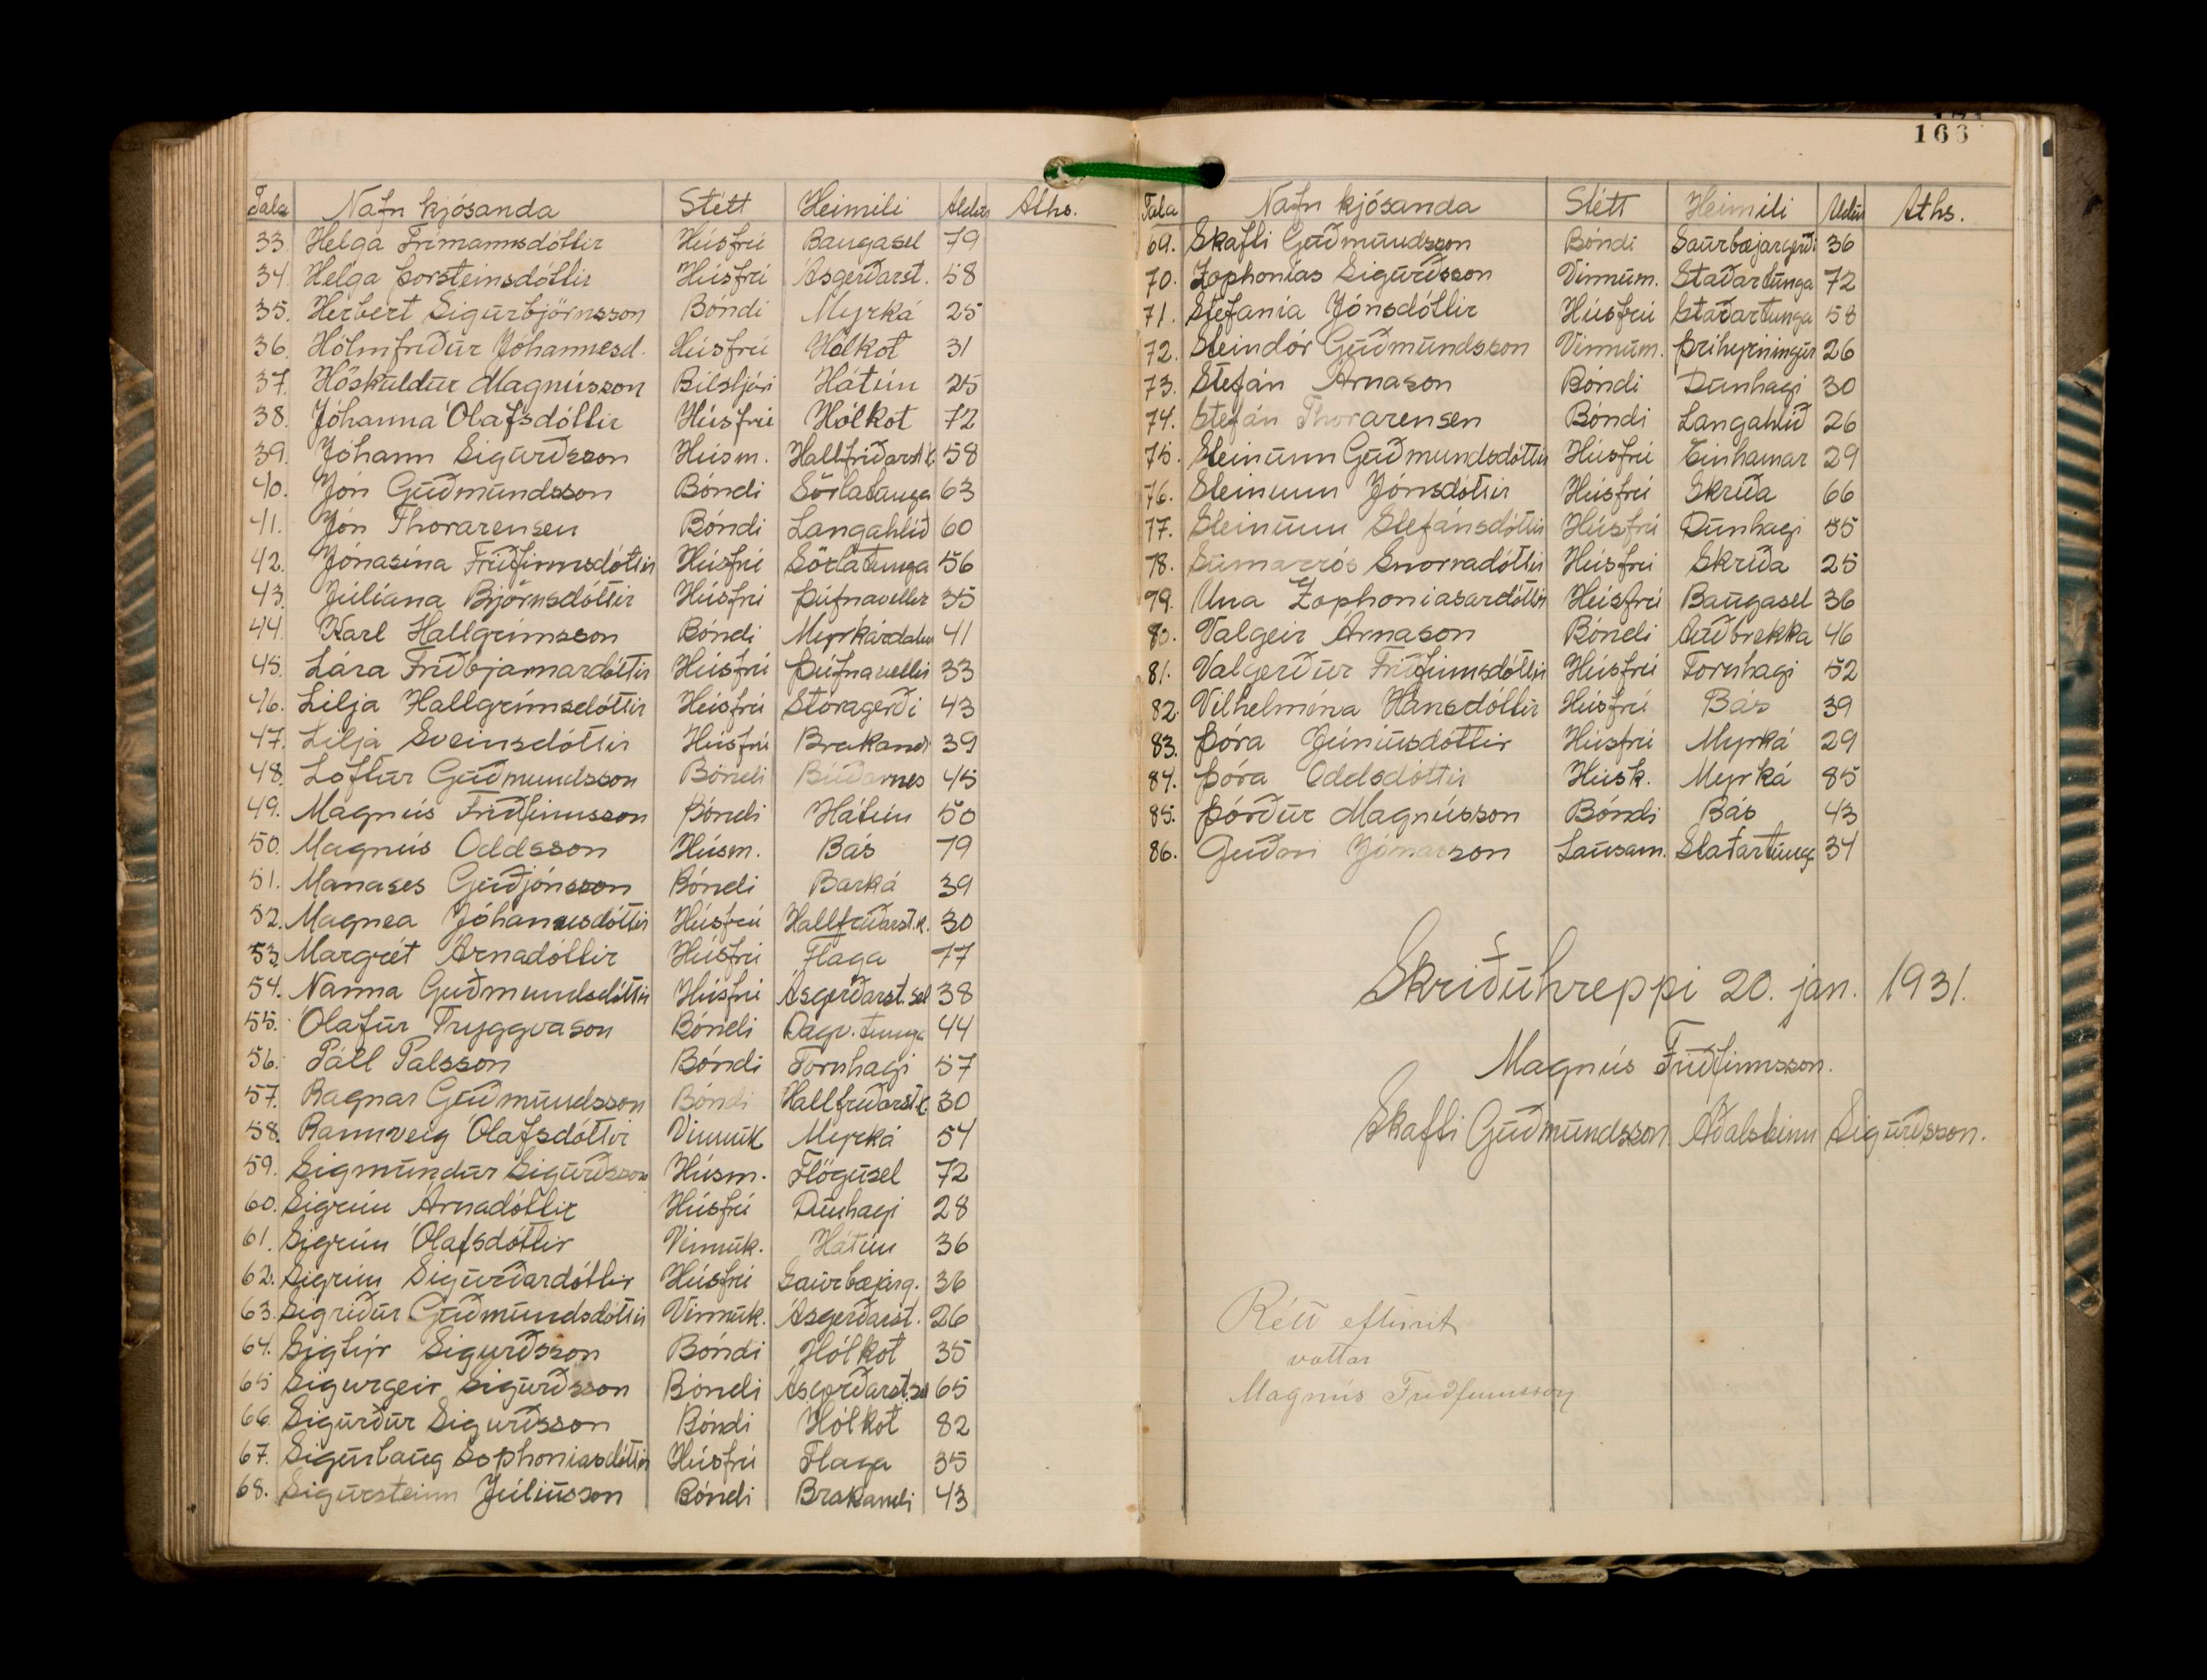 163
Tala Nafn kjósanda Stétt Heimili Aldur Aths.
33. Helga Frímannsdóttir Húsfrú Baugasel 79
34. Helga Þorsteinsdóttir Húsfrú Ásgerðarst. 58
35. Herbert Sigurbjörnsson Bóndi Myrká 25
36. Hólmfríður Jóhannesd. Húsfrú Hólkot 31
37. Höskuldur Magnússon Bílstjóri Hátún 25
38. Jóhanna Ólafsdóttir Húsfrú Hólkot 72
39. Jóhann Sigurðsson Húsm. Hallfríðarst.k. 58
40. Jón Guðmundsson Bóndi Sörlatunga 63
41. Jón Thorarensen Bóndi Langahlíð 60
42. Jónasína Friðfinnsdóttir Húsfrú Sörlatunga 56
43. Júlíana Björnsdóttir Húsfrú Þúfnavellir 35
44. Karl Hallgrímsson Bóndi Myrkárdalur 41
45. Lára Friðbjarnardóttir Húsfrú Þúfnavellir 33
46. Lilja Hallgrímsdóttir Húsfrú Stóragerði 43
47. Lilja Sveinsdóttir Húsfrú Brakandi 39
48. Loftur Guðmundsson Bóndi Búðarnes 45
49. Magnús Friðfinnsson Bóndi Hátún 50
50. Magnús Oddsson Húsm. Bás 79
51. Manases Guðjónsson Bóndi Barká 39
52. Magnea Jóhannesdóttir Húsfrú Hallfríðarst.k. 30
53. Margrét Árnadóttir Húsfrú Flaga 77
54. Nanna Guðmundsdóttir Húsfrú Ásgerðarst.sel 38
55. Ólafur Tryggvason Bóndi Dagv.tunga 44
56. Páll Pálsson Bóndi Fornhagi 57
57. Ragnar Guðmundsson Bóndi Hallfríðarst.k. 30
58. Rannveig Ólafsdóttir Vinnuk Myrká 54
59. Sigmundur Sigurðsson Húsm. Flögusel 72
60. Sigrún Árnadóttir Húsfrú Dunhagi 28
61. Sigrún Ólafsdóttir Vinnuk. Hátún 36
62. Sigrún Sigurðardóttir Húsfrú Saurbæjarg. 36
63. Sigríður Guðmundsdóttir Vinnuk. Ásgerðarst. 26
64. Sigtýr Sigurðsson Bóndi Hólkot 35
65 Sigurgeir Sigurðsson Bóndi Ásgerðarst.sel 65
66. Sigurður Sigurðsson Bóndi Hólkot 82
67. Sigurlaug Sophoníasdóttir Húsfrú Flaga 35
68. Sigursteinn Júlíusson Bóndi Brakandi 43
Tala Nafn kjósanda Stétt Heimili Aldur Aths.
69. Skafti Guðmundsson Bóndi Saurbæjargerði 36
70. Zophonías Sigurðsson Vinnum. Staðartunga 72
71. Stefanía Jónsdóttir Húsfrú Staðartunga 58
72. Steindór Guðmundsson Vinnum. Þríhyrningur 26
73. Stefán Árnason Bóndi Dunhagi 30
74. Stefán Thorarensen Bóndi Langahlíð 26
75. Steinunn Guðmundsdóttir Húsfrú Einhamar 29
76. Steinunn Jónsdóttir Húsfrú Skriða 66
77. Steinunn Stefánsdóttir Húsfrú Dunhagi 55
78. Sumarrós Snorradóttir Húsfrú Skriða 25
79. Una Zophoníasardóttir Húsfrú Baugasel 36
80. Valgeir Árnason Bóndi Auðbrekka 46
81. Valgerður Friðfinnsdóttir Húsfrú Fornhagi 52
82. Vilhelmína Hansdóttir Húsfrú Bás 39
83. Þóra Júníusdóttir Húsfrú Myrká 29
84. Þóra Oddsdóttir Húsk. Myrká 85
85. Þórður Magnússon Bóndi Bás 43
86. Guðni Jónasson Lausam. Staðartunga 34
Skriðuhreppi 20. jan. 1931.
Magnús Friðfinnsson.
Skafti Guðmundsson. Aðalsteinn Sigurðsson.
Rétt eftirrit
vottar
Magnús Friðfinnsson